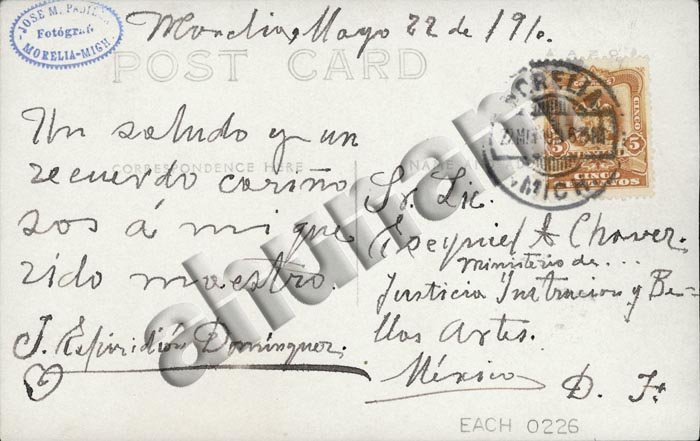 JOSE M. PADILLA
Fotógrafo
MORELIA-MICH.
Morelia, Mayo 22 de 1910.
POST CARD
Un saludo y un
CORRESPONDENCE HERE
recuerdo cariño
sos á mi que
rido maestro.
J. Espiridión Domínguez.
NAME
Sr. Lic.
Ezequiel A Chavez.
Ministerio de...
Justicia Instrucion y Be-
llas Artes.
México
D. F.
MORELIA
MICH
CINCO
5 5
CINCO
CENTAVOS
ahunan
EACH 0226